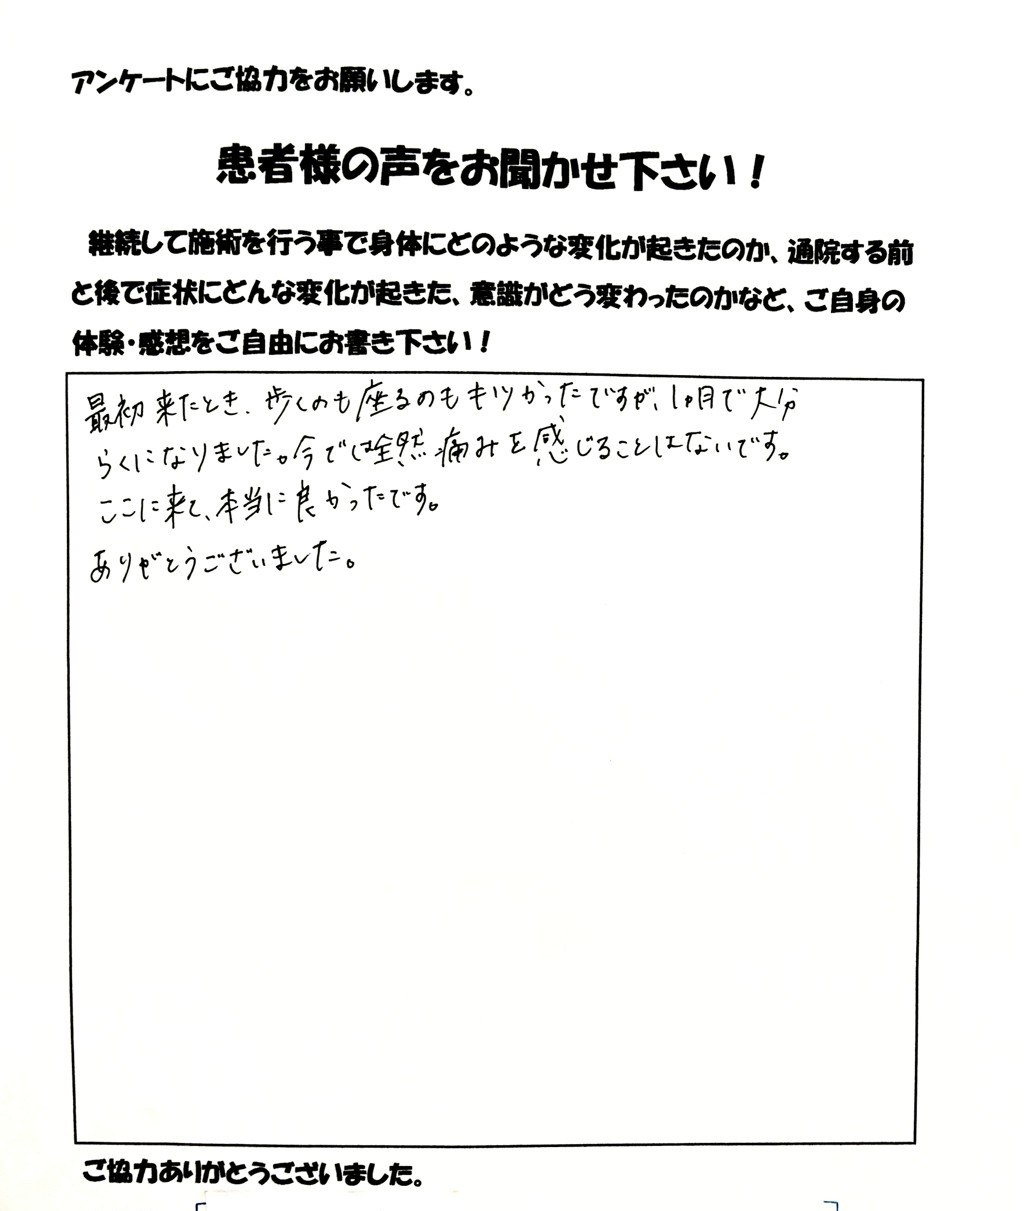 アンケートにご協力をお願いします。
患者様の声をお聞かせ下さい！
継続して施術を行う事で身体にどのような変化が起きたのか、通院する前
と後で症状にどんな変化が起きた、意識がどう変わったのかなど、ご自身の
体験・感想をご自由にお書き下さい！
最初来たとき、歩くのも座るのもキツかったですが、1ヶ月で大分
らくになりました。今では全然痛みを感じることはないです。
ここに来て、本当に良かったです。
ありがとうございました。
ご協力ありがとうございました。